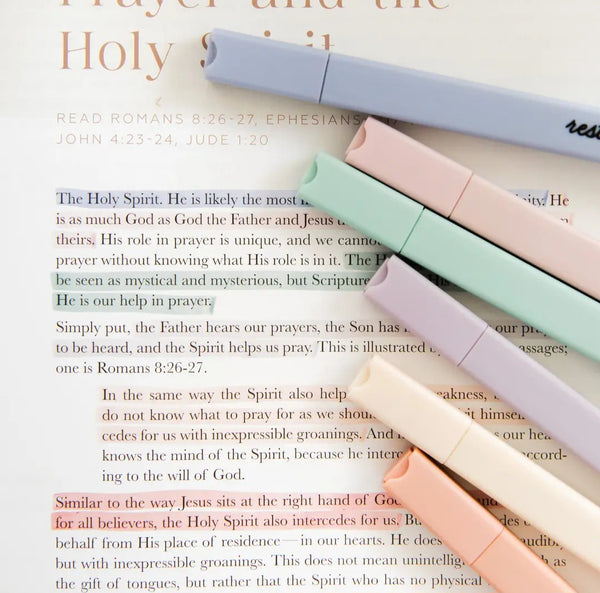 Prayer and the
Holy Spirit
READ ROMANS 8:26-27, EPHESIANS
JOHN 4:23-24, JUDE 1:20
rest
The Holy Spirit. He is likely the most He
is as much God as God the Father and Jesus
theirs. His role in prayer is unique, and we
prayer without knowing what His role is in it. The
be seen as mystical and mysterious, but Scripture His
He is our help in prayer.
Simply put, the Father hears our prayers, the Son has our
to be heard, and the Spirit helps us pray. This is illustrated
one is Romans 8:26-27.
In the same way the Spirit also help
do not know what to pray for as we
cedes for us with inexpressible groanings. And our
knows the mind of the Spirit, because he accord-
ing to the will of God.
Similar to the way Jesus sits at the right hand of God and
for all believers, the Holy Spirit also intercedes for us.
behalf from His place of residence—in our hearts. He does
but with inexpressible groanings. This does not mean as
the gift of tongues, but rather that the Spirit who has no physical